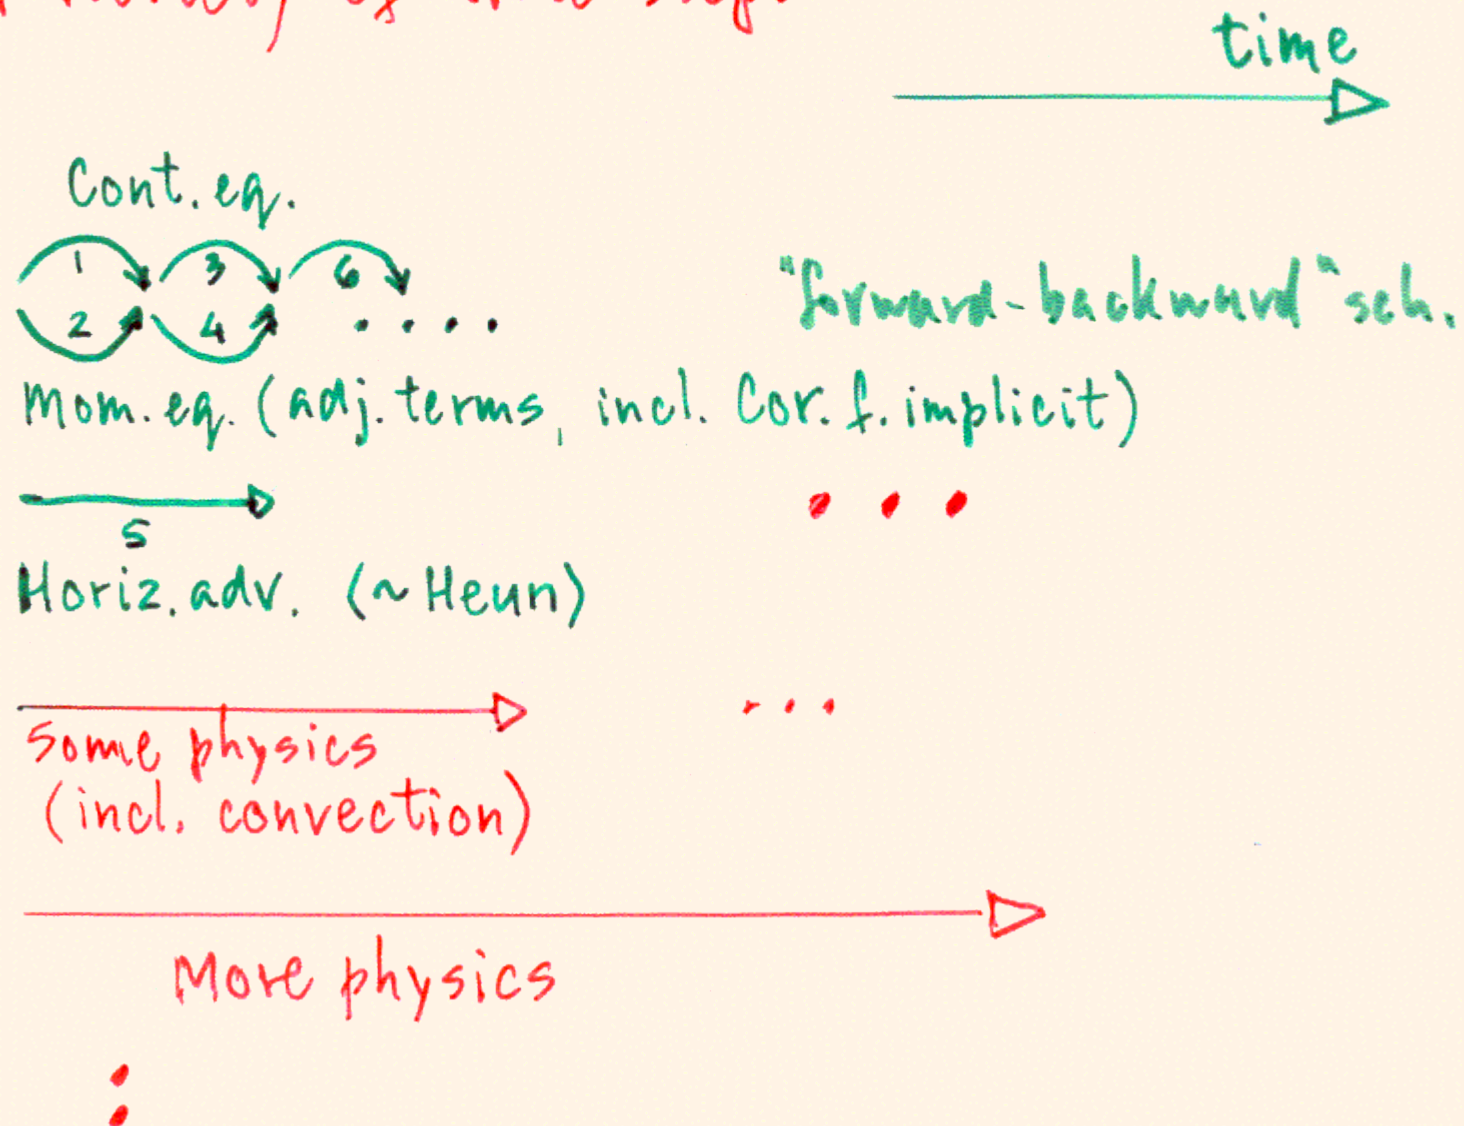 time
Cont. eq.
1 3 6
2 4 . . . .
"forward-backward" sch.
Mom. eq. (adj. terms, incl. Cor. f. implicit)
5
Horiz. adv. (~ Heun)
• • •
Some physics
(incl. convection)
. . .
More physics